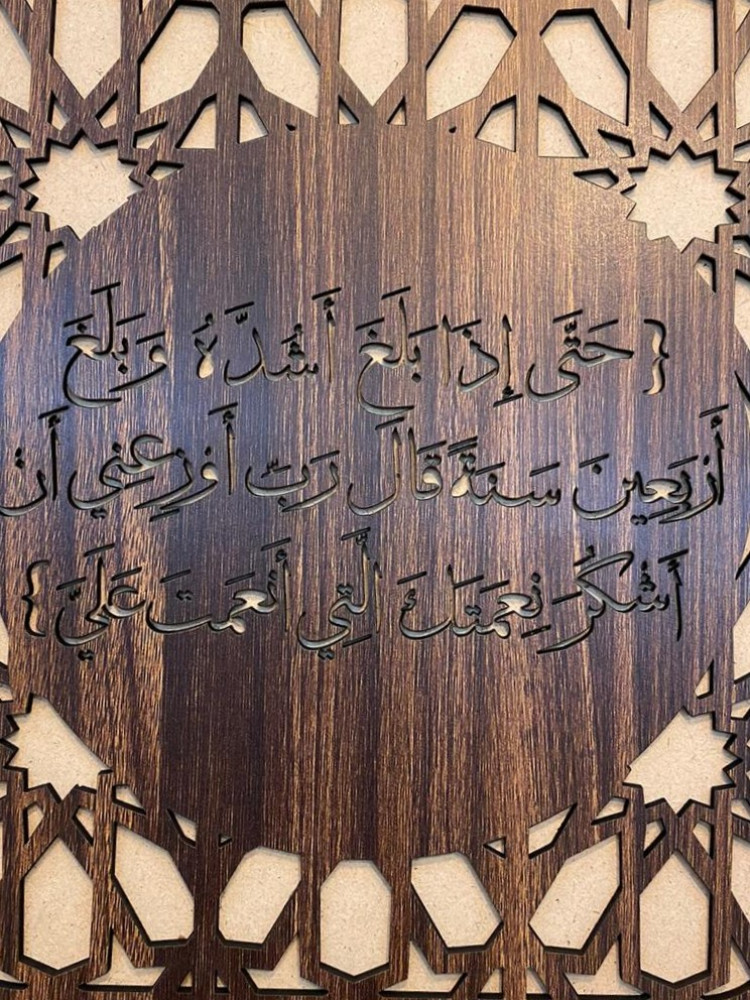 { حَتَّى إِذَا بَلَغَ أَشُدَّهُ وَبَلَغَ
أَرْبَعِينَ سَنَةً قَالَ رَبِّ أَوْزِعْنِي أَنْ
أَشْكُرَ نِعْمَتَكَ الَّتِي أَنْعَمْتَ عَلَيَّ }